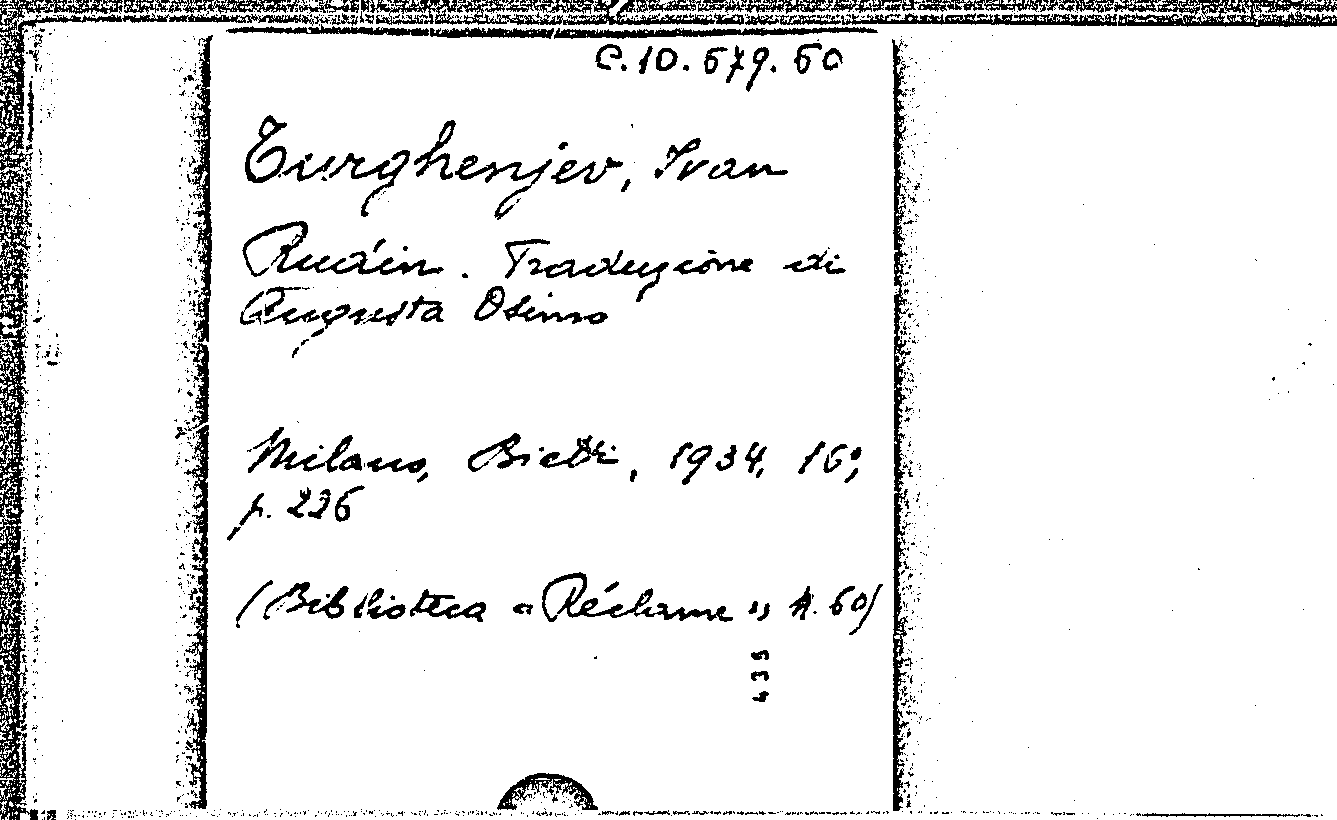 C.10.679.60
Turghenjev, Ivan
Rudin. Traduzione di
Augusta Osimo
Milano, Bietti, 1934, 16°,
p. 226
(Biblioteca « Réclame » N. 60)
435